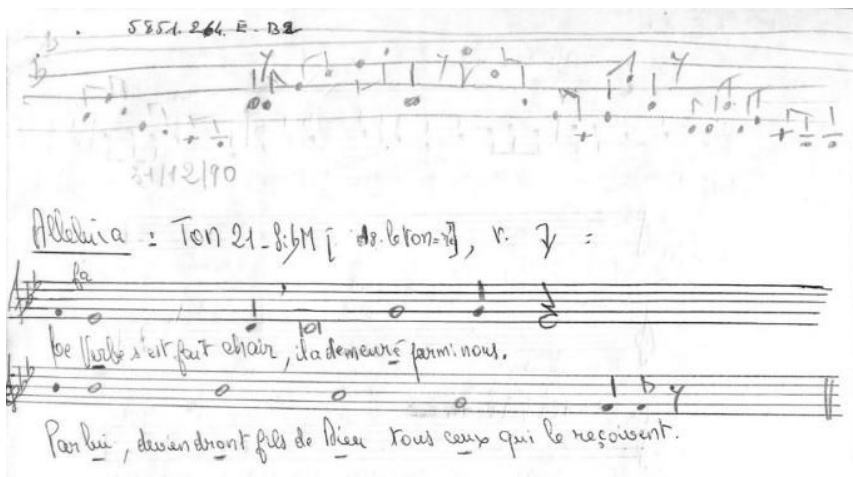 5851.264.E-B2
31/12/90
Alleluia : Ton 21-SibM [ le ton= ], v. =
fa
Le Verbe s'est fait chair, il a demeuré parmi nous.
Par lui, deviendront fils de Dieu tous ceux qui le reçoivent.